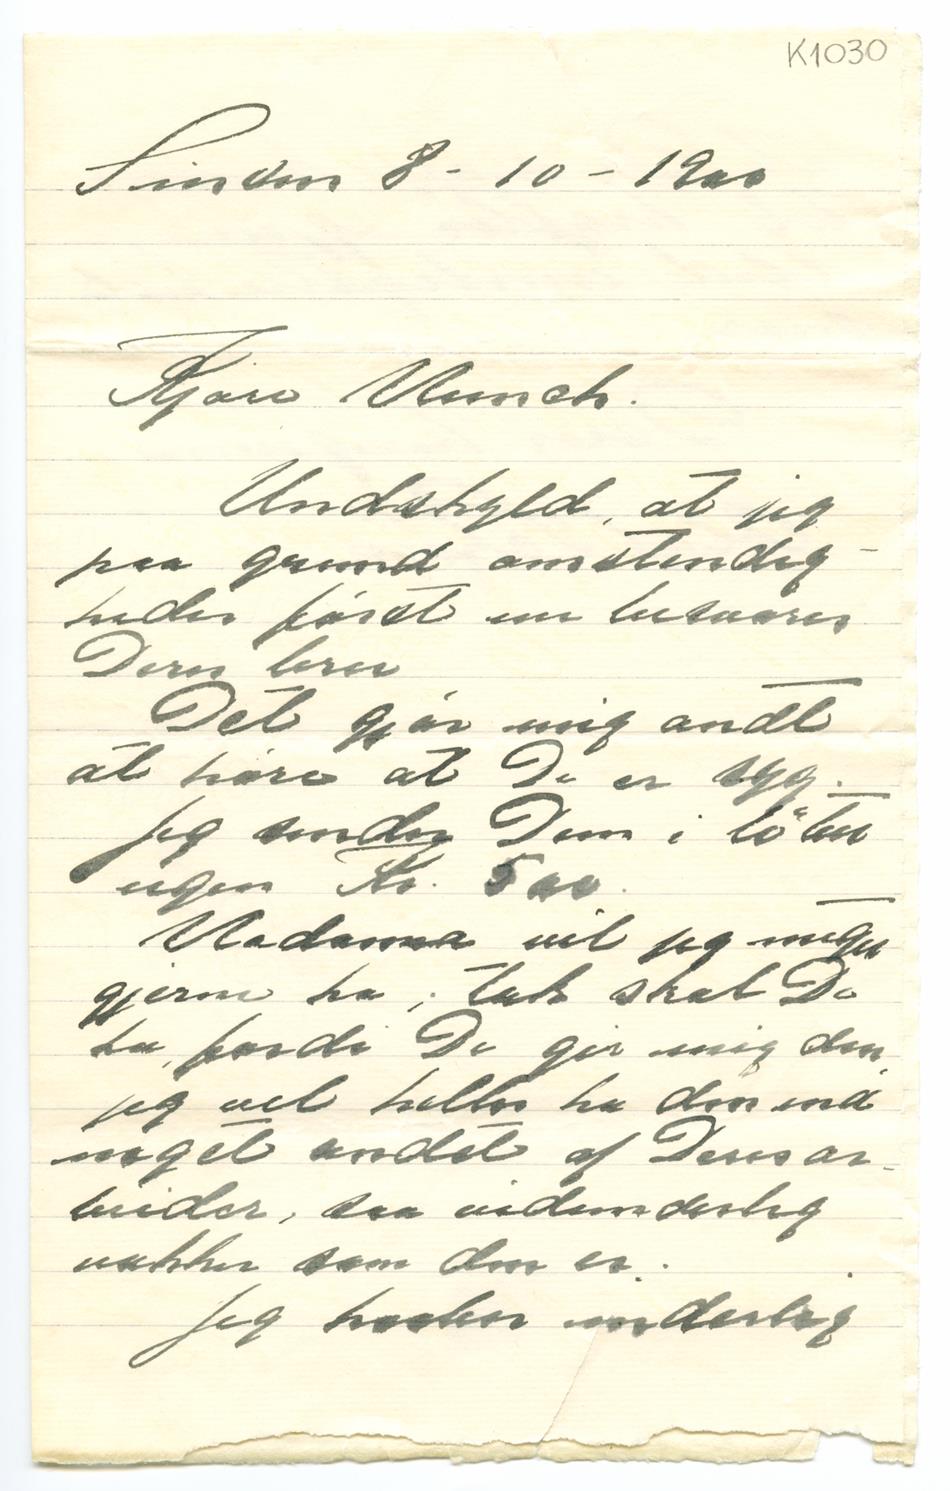 K1030
Sinsen 8 - 10 - 1900
Kjære Munch.
Undskyld, at jeg
paa grund omstendig-
heder først nu besvarer
Deres brev
Det gjør mig ondt
at høre at De er syg.
Jeg sender Dem i løbet
ugen Kr. 500.
Madonna vil jeg meget
gjerne ha, tak skal De
ha, fordi De gir mig den,
jeg vil heller ha den end
noget andet af Deres ar-
beider, saa vidunderlig
vakker som den er.
Jeg haaber inderlig